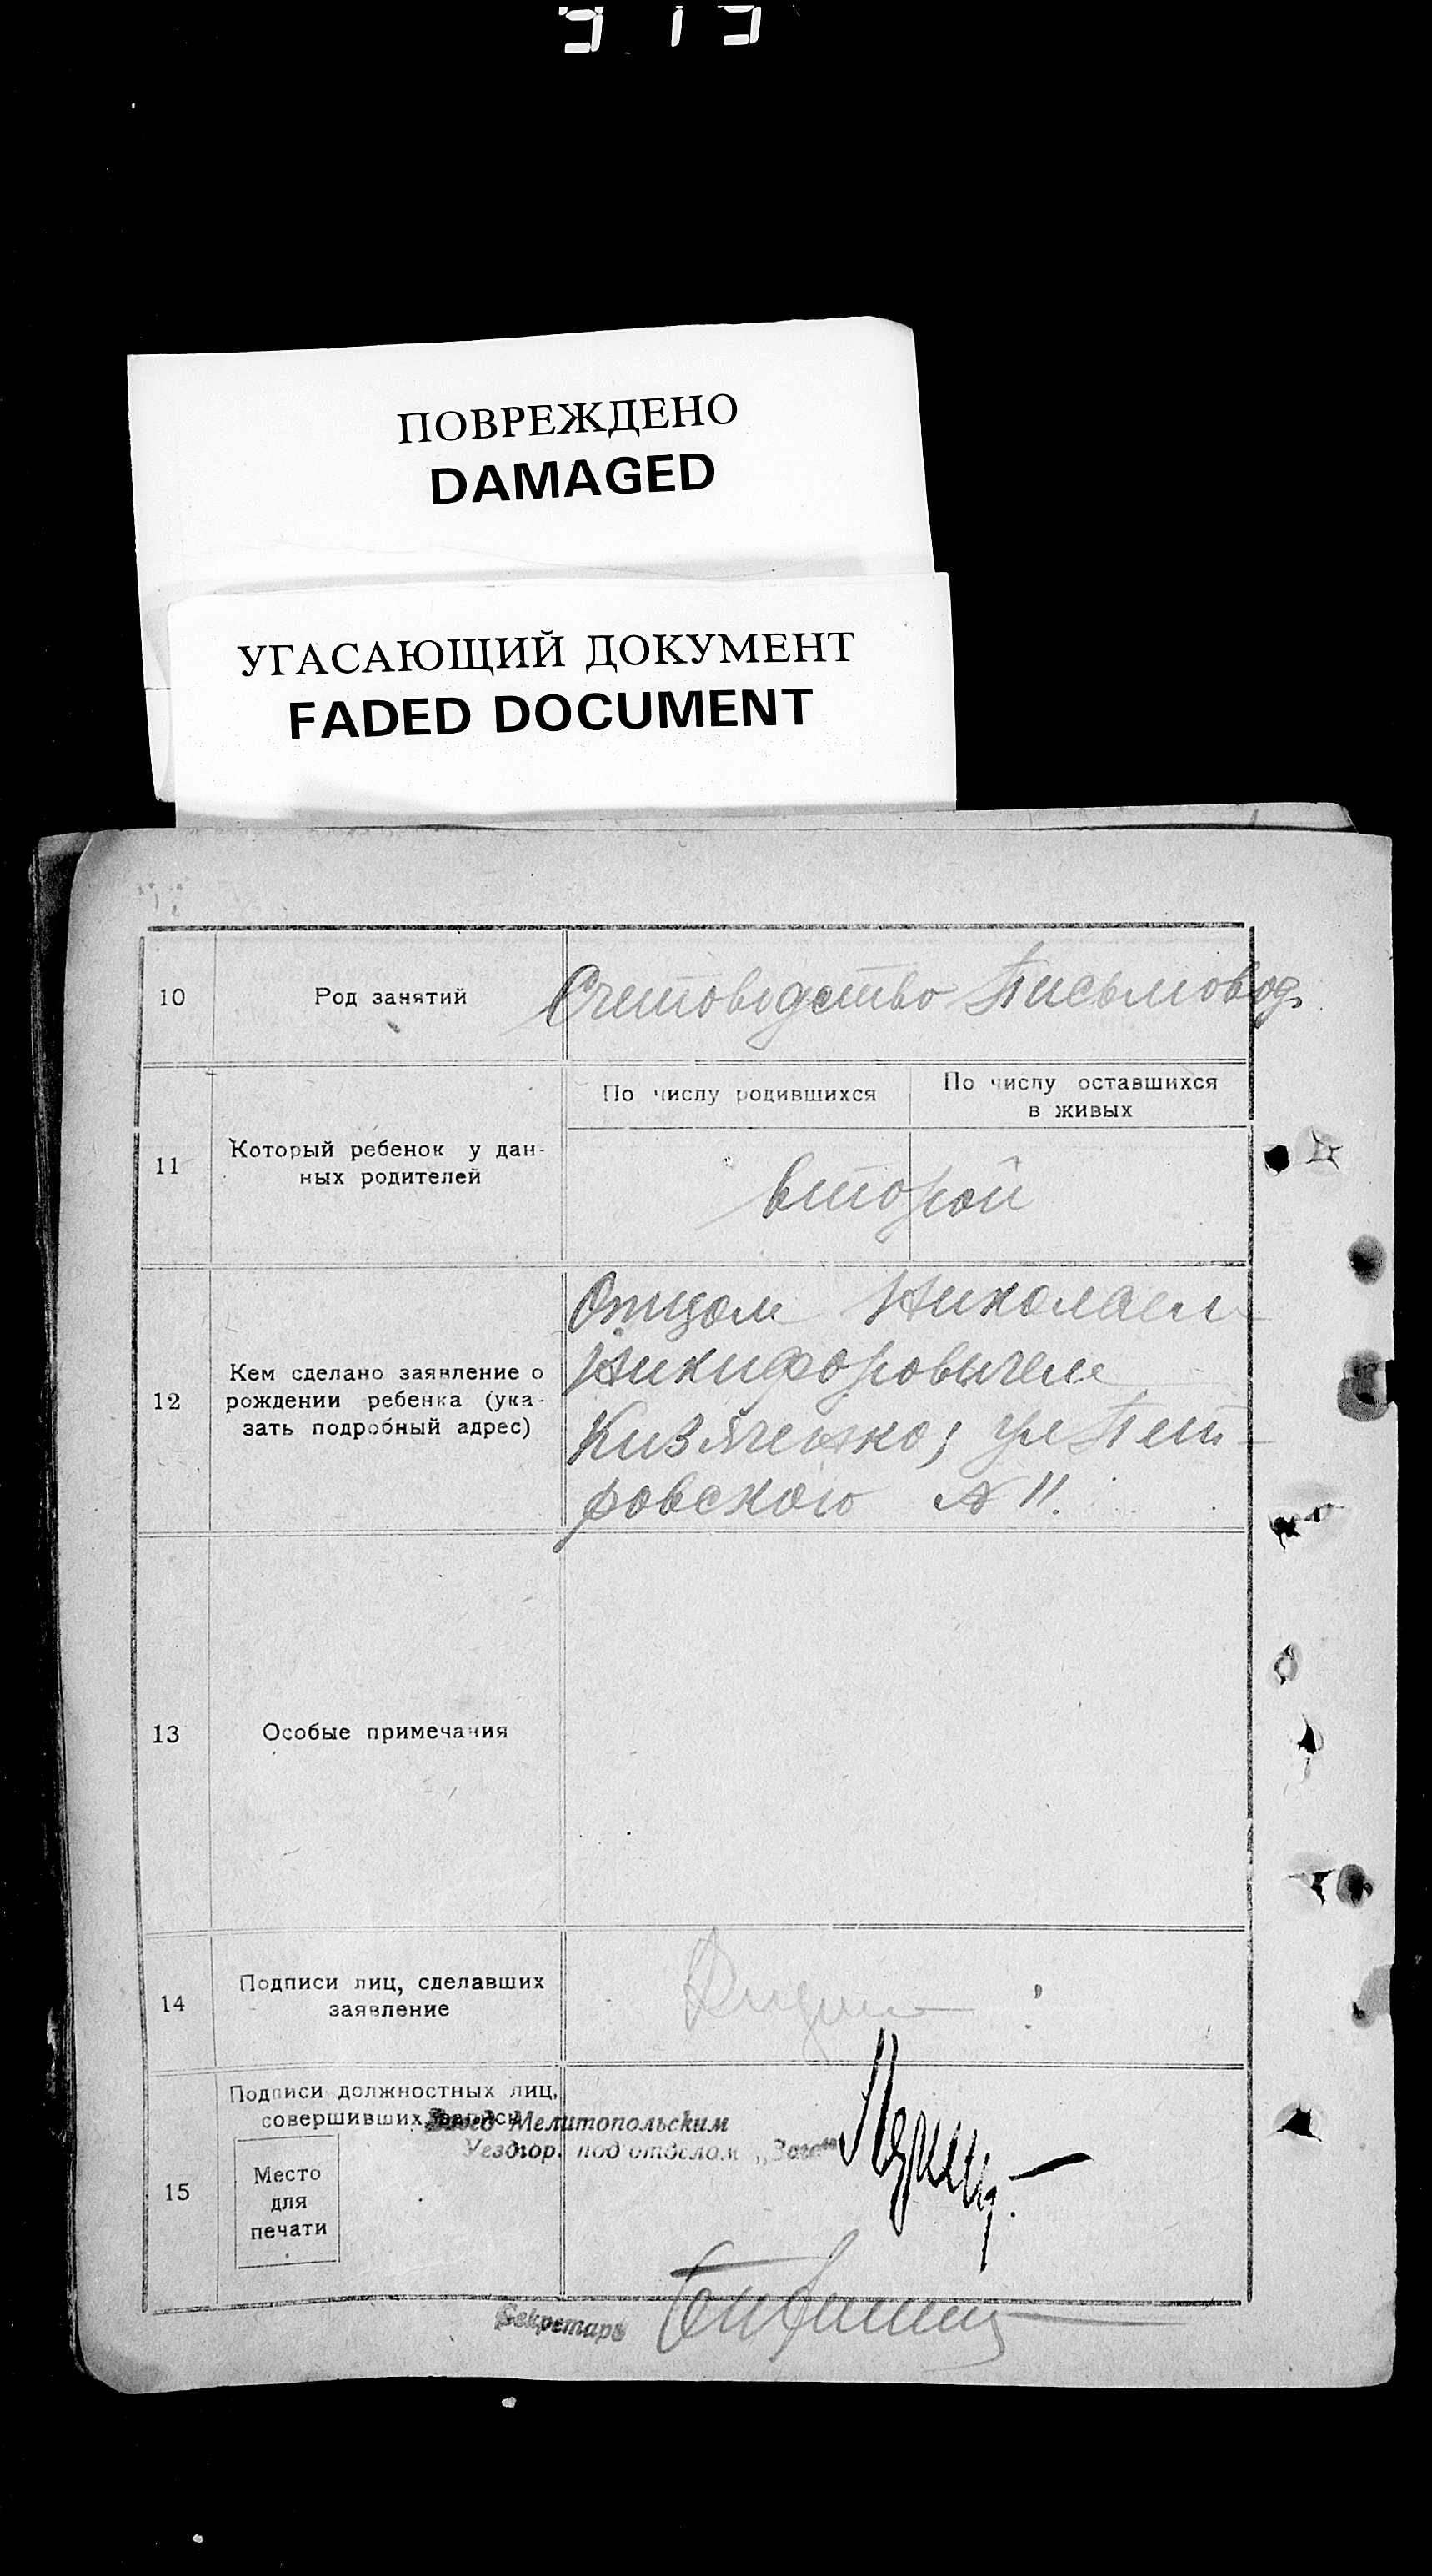 ПОВРЕЖДЕНО
DAMAGED
УГАСАЮЩИЙ ДОКУМЕНТ
FADED DOCUMENT
10
Род занятий
Счетоводство Письмовод.
11
Который ребенок у дан-
ных родителей
По числу родившихся
По числу оставшихся
в живых
второй
12
Кем сделано заявление о
рождении ребенка (ука-
зать подробный адрес)
Отцом Николаем
Никифоровичем
Кизяченко, ул Пет-
ровского № 11.
13
Особые примечания
14
Подписи лиц, сделавших
заявление
15
Подписи должностных лиц,
совершивших запись
Завед Мелитопольским
Уездгор. под отделом „Загс“
Место
для
печати
Секретарь